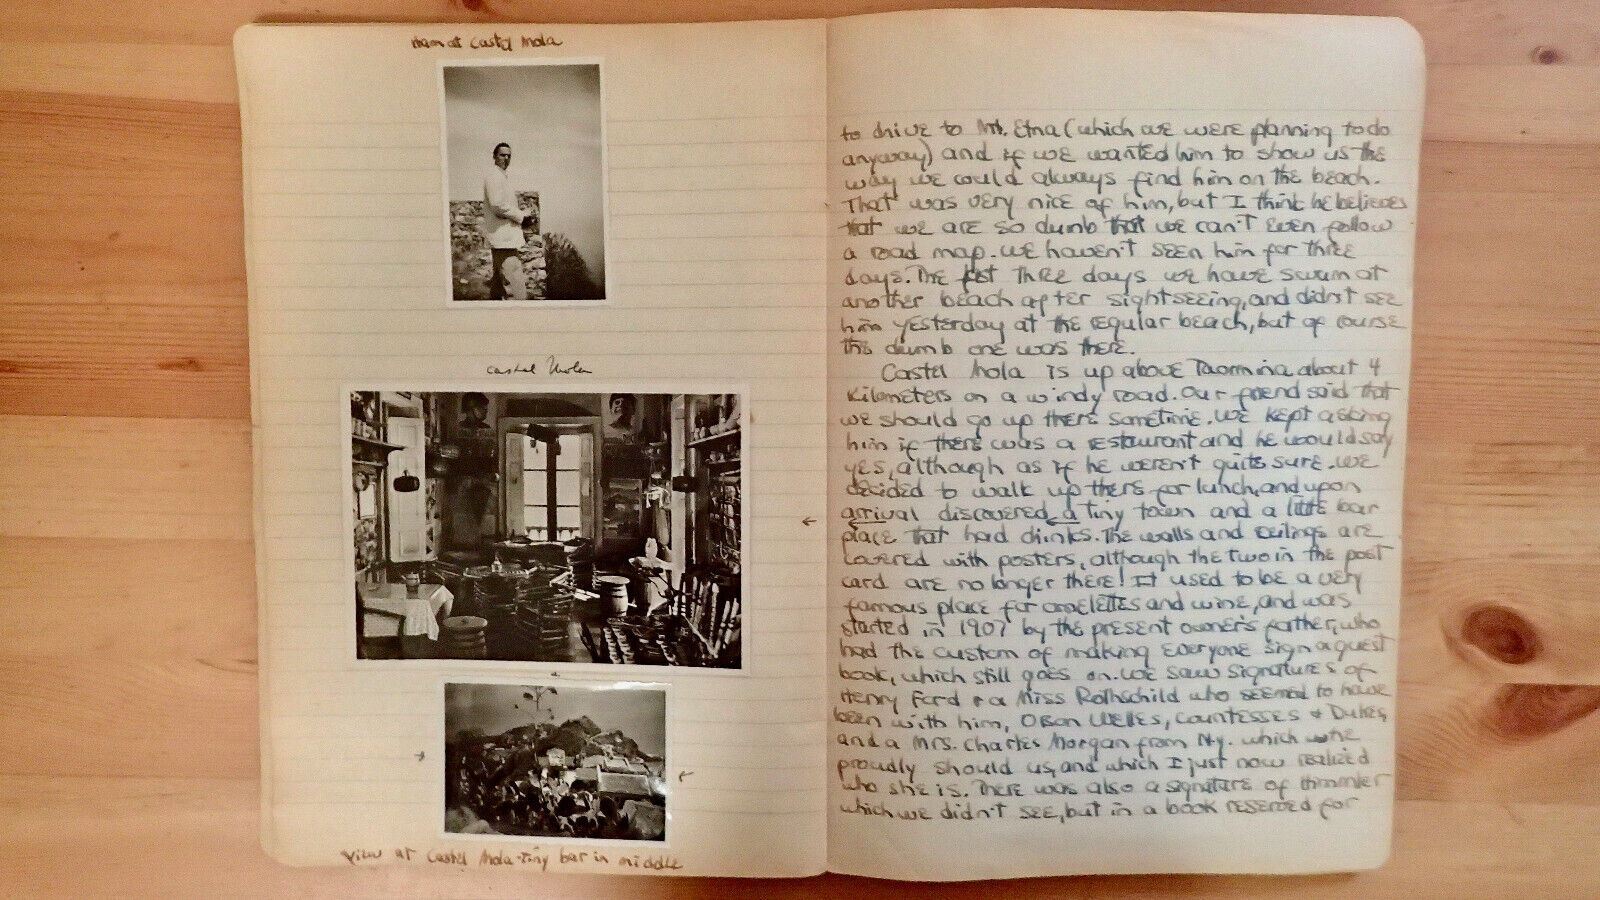 at Castel Mola
Castel Mola
view at Castel Mola - tiny bar in middle
to drive to Mt. Etna (which we were planning to do
anyway) and if we wanted him to show us the
way we could always find him on the beach.
That was very nice of him, but I think he believes
that we are so dumb that we can't even follow
a road map. We haven't seen him for three
days. The three days we have swum at
another beach after sightseeing, and didn't see
him yesterday at the regular beach, but of course
the dumb one was there.
Castel Mola is up above Taormina about 4
kilometers on a windy road. Our friend said that
we should go up there sometime. We kept asking
him if there was a restaurant and he would say
yes, although as if he weren't quite sure. We
decided to walk up there for lunch, and upon
arrival discovered a tiny town and a little bar
place that had drinks. The walls and ceilings are
covered with posters, although the two in the post
card are no longer there! It used to be a very
famous place for omelettes and wine, and was
started in 1907 by the present owner's father, who
had the custom of making everyone sign a guest
book, which still goes on. We saw signatures of
Henry Ford & a Miss Rothschild who seemed to have
been with him, Orson Welles, Countesses & Dukes,
and a Mrs. Charles Morgan from N.y. which
proudly should us, and which I just now realized
who she is. There was also a signature of Himmler
which we didn't see, but in a book reserved for